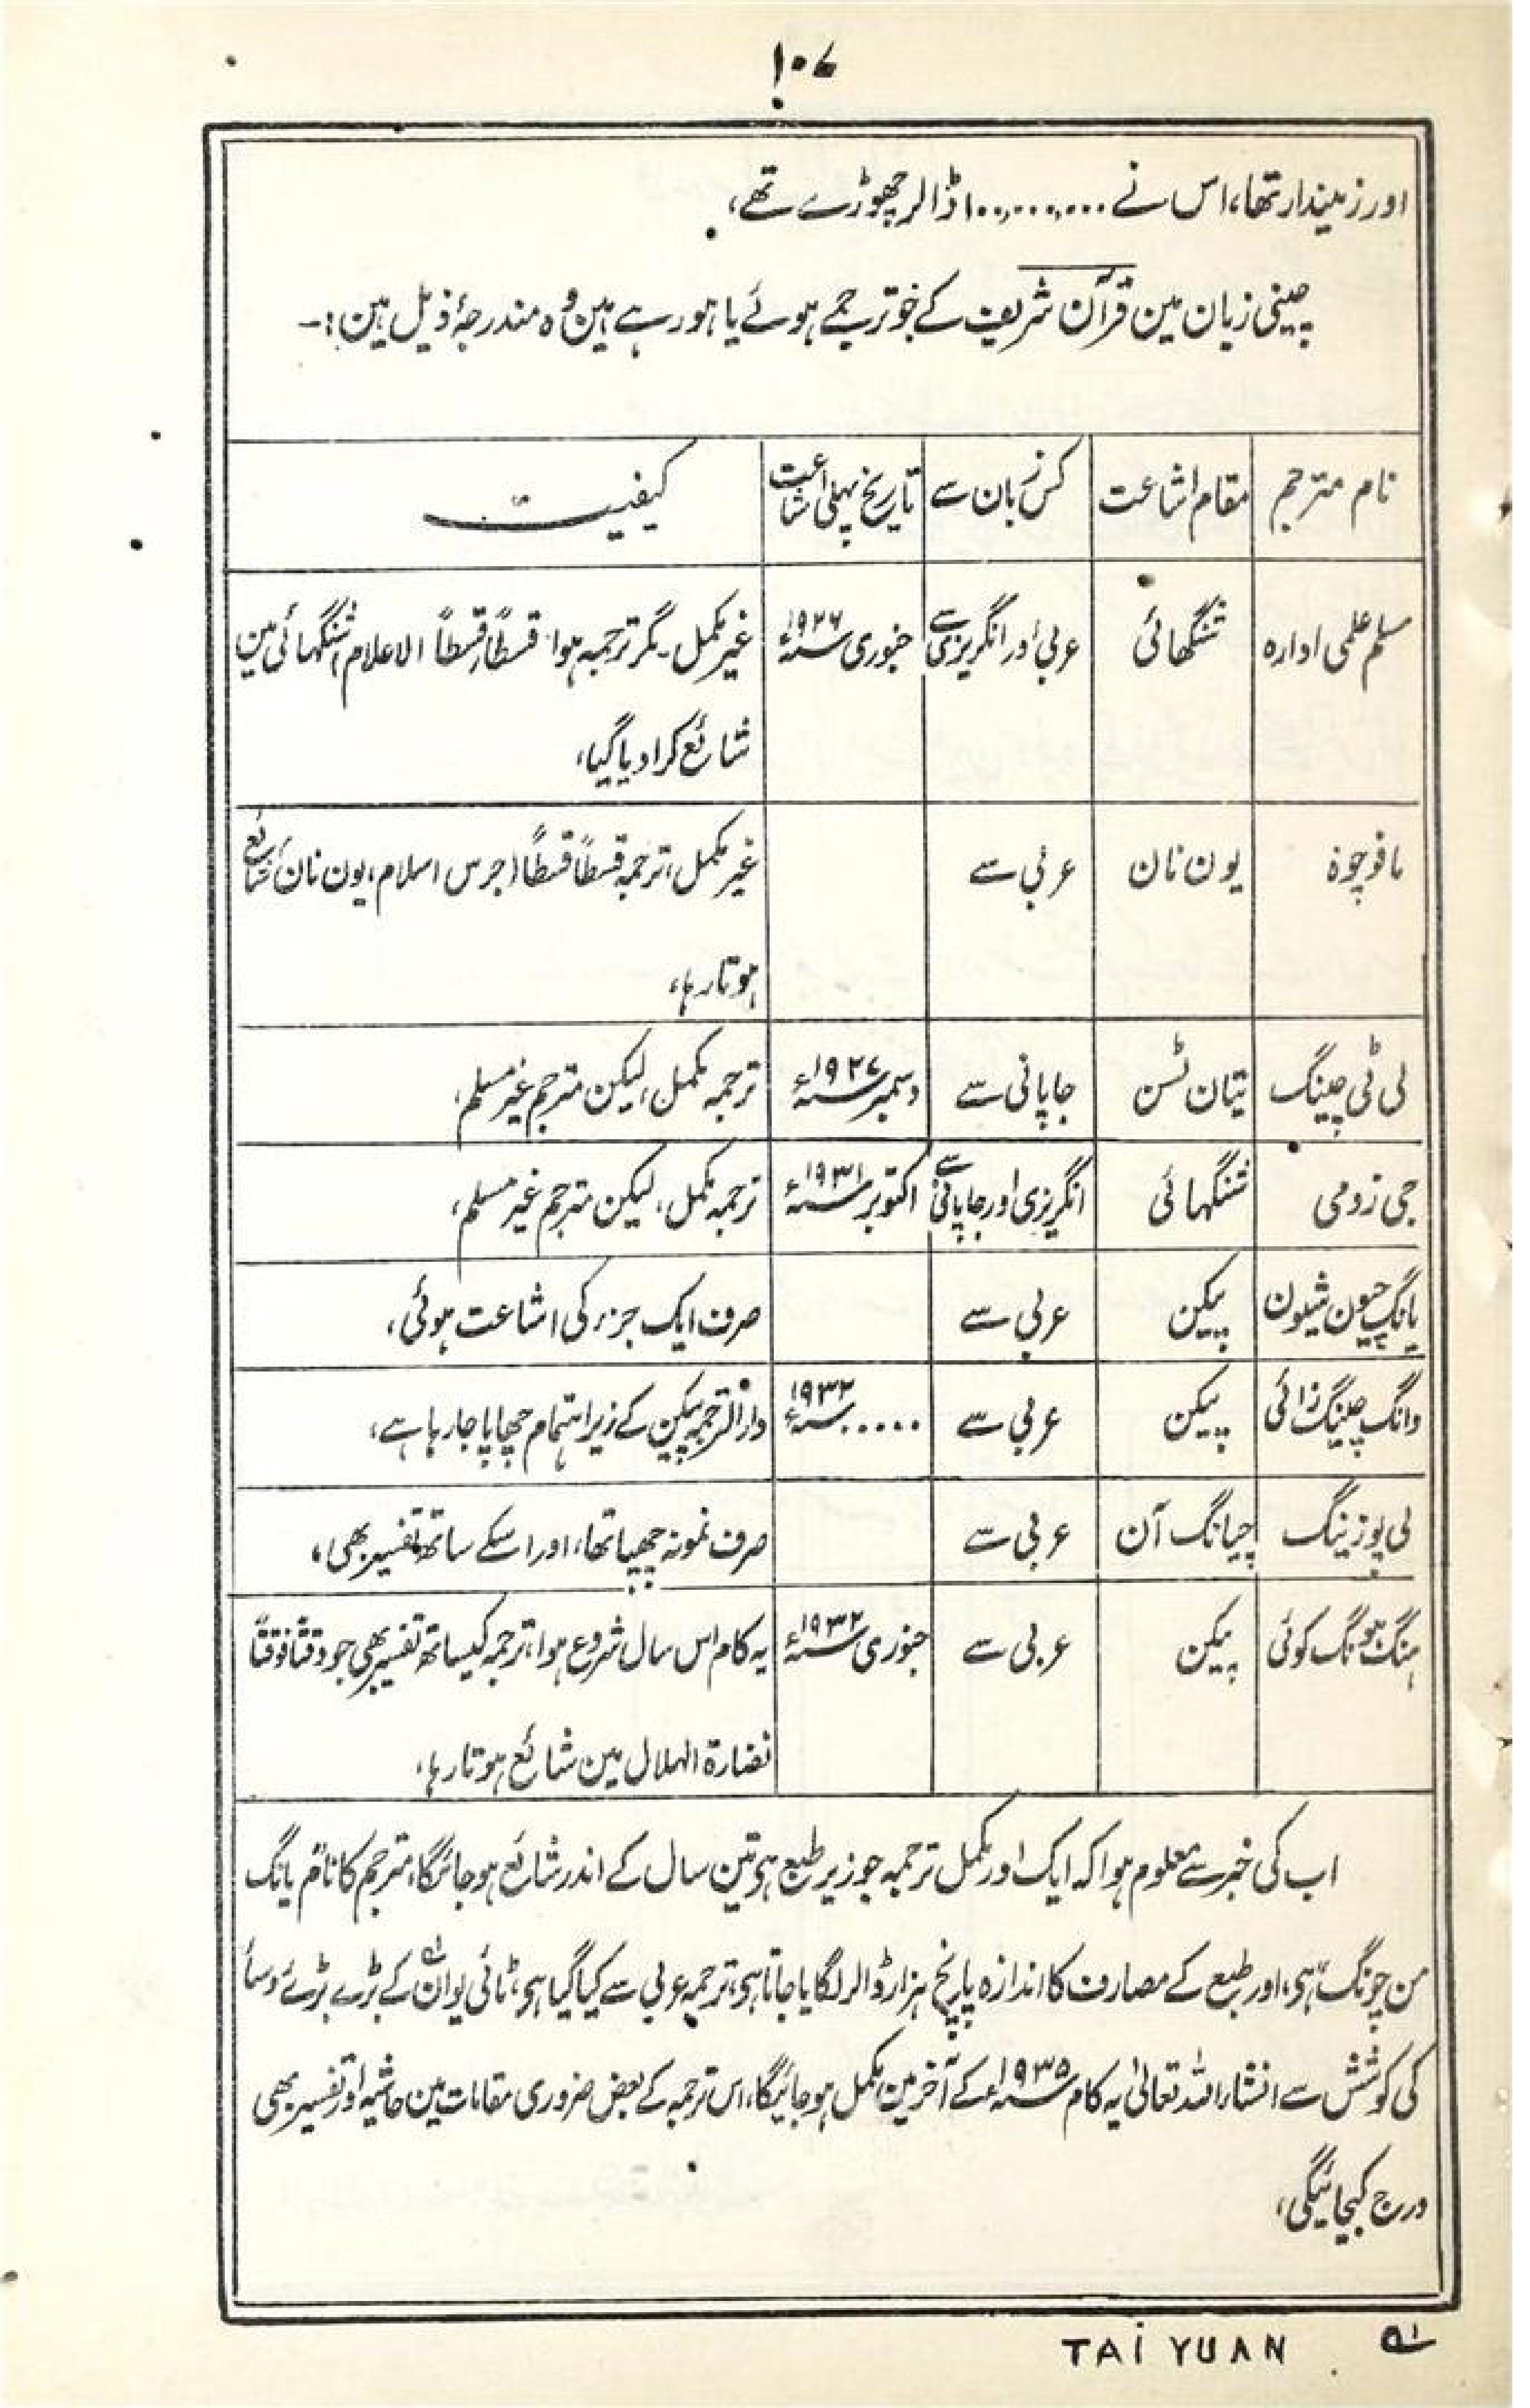 ۱۰۷
اور زمیندار تھا، اس نے ۱۰،۰۰۰،۰۰۰ ڈالر چھوڑے تھے،
چینی زبان مین قرآن شریف کے جو ترجمے ہوئے یا ہو رہے ہین وہ مندرجۂ ذیل ہین:۔
نام مترجم | مقام اشاعت | کس زبان سے | تاریخ پہلی اشاعت | کیفیت
مسلم علمی ادارہ | شنگھائی | عربی اور انگریزی سے | جنوری ۱۹۲۶ء | غیر مکمل۔ مگر ترجمہ ہوا قسطاً قسطاً الاعلام شنگہائی مین
شائع کرا دیا گیا،
مافوچوہ | یون نان | عربی سے | غیر مکمل، ترجمہ قسطاً قسطاً اجرس اسلام، یون نان شائع
ہوتا رہا،
لی ٹی چینگ | تیان ٹسن | جاپانی سے | دسمبر ۱۹۲۷ء | ترجمہ مکمل، لیکن مترجم غیر مسلم،
جی زومی | شنگہائی | انگریزی اور جاپانی سے | اکتوبر ۱۹۳۱ء | ترجمہ مکمل، لیکن مترجم غیر مسلم،
یانگ چیون شیون | پیکن | عربی سے | صرف ایک جزر کی اشاعت ہوئی،
وانگ چینگ زائی | پیکن | عربی سے | ..... ۱۹۳۲ء | دار الترجمہ پیکن کے زیر اہتمام چھاپا جا رہا ہے،
لی یوزینگ | چیانگ آن | عربی سے | صرف نمونہ چھپا تھا، اور اسکے ساتھ تفسیر بھی،
ہنگ ہونگ کوئی | پیکن | عربی سے | جنوری ۱۹۳۲ء | یہ کام اس سال شروع ہوا، ترجمہ کیساتھ تفسیر بھی جو وقتاً فوقتاً
نضارۃ الہلال مین شائع ہوتا رہا،
اب کی خبر سے معلوم ہوا کہ ایک اور مکمل ترجمہ جو زیر طبع ہی تین سال کے اندر شائع ہو جائیگا، مترجم کا نام یانگ
من چونگ ہی، اور طبع کے مصارف کا اندازہ پانچ ہزار ڈالر لگایا جاتا ہی، ترجمہ عربی سے کیا گیا ہی، ٹائی یوان کے بڑے بڑے وسا
کی کوشش سے انشاراللہ تعالیٰ یہ کام ۱۹۳۵ء کے آخر مین مکمل ہو جائیگا، اس ترجمہ کے بعض ضروری مقامات مین حاشیہ اور تفسیر بھی
درج کیجائیگی،
۱ے TAI YUAN